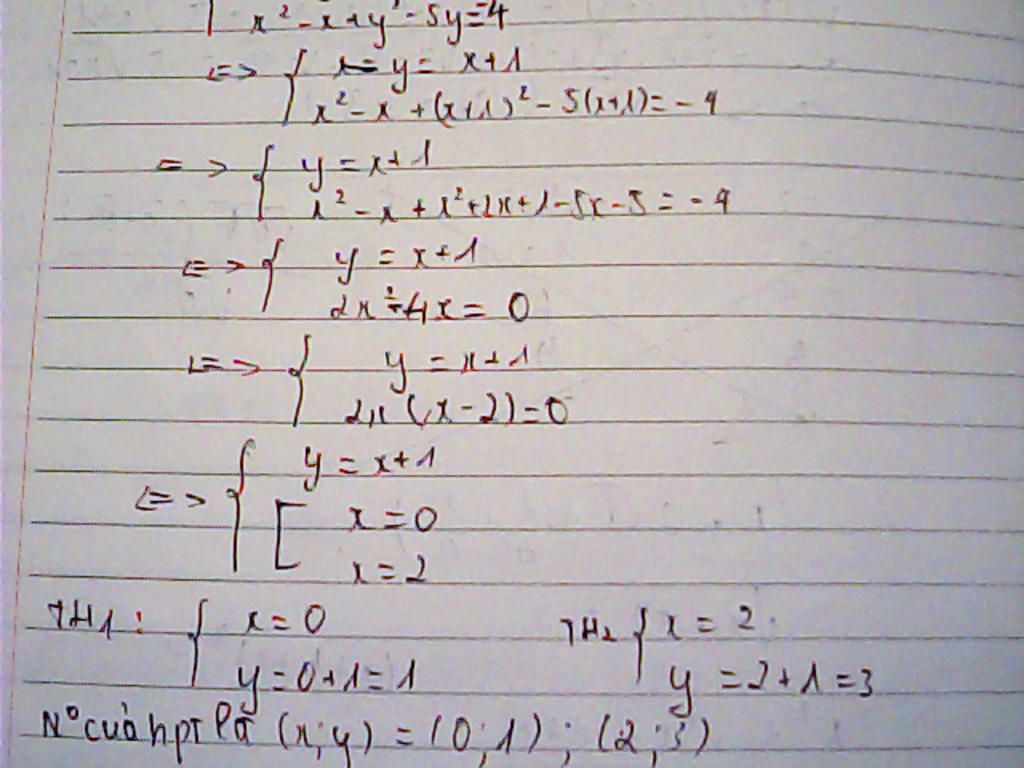 x² - x + y² - 5y = -4
<=> { y = x+1
x² - x + (x+1)² - 5(x+1) = -4
=> { y = x+1
x² - x + x² + 2x + 1 - 5x - 5 = -4
<=> { y = x+1
2x² - 4x = 0
<=> { y = x+1
2x(x-2) = 0
<=> { y = x+1
[ x = 0
x = 2
TH1: { x = 0
y = 0+1 = 1
TH2 { x = 2
y = 2+1 = 3
N° của hpt là (x;y) = (0;1); (2;3)